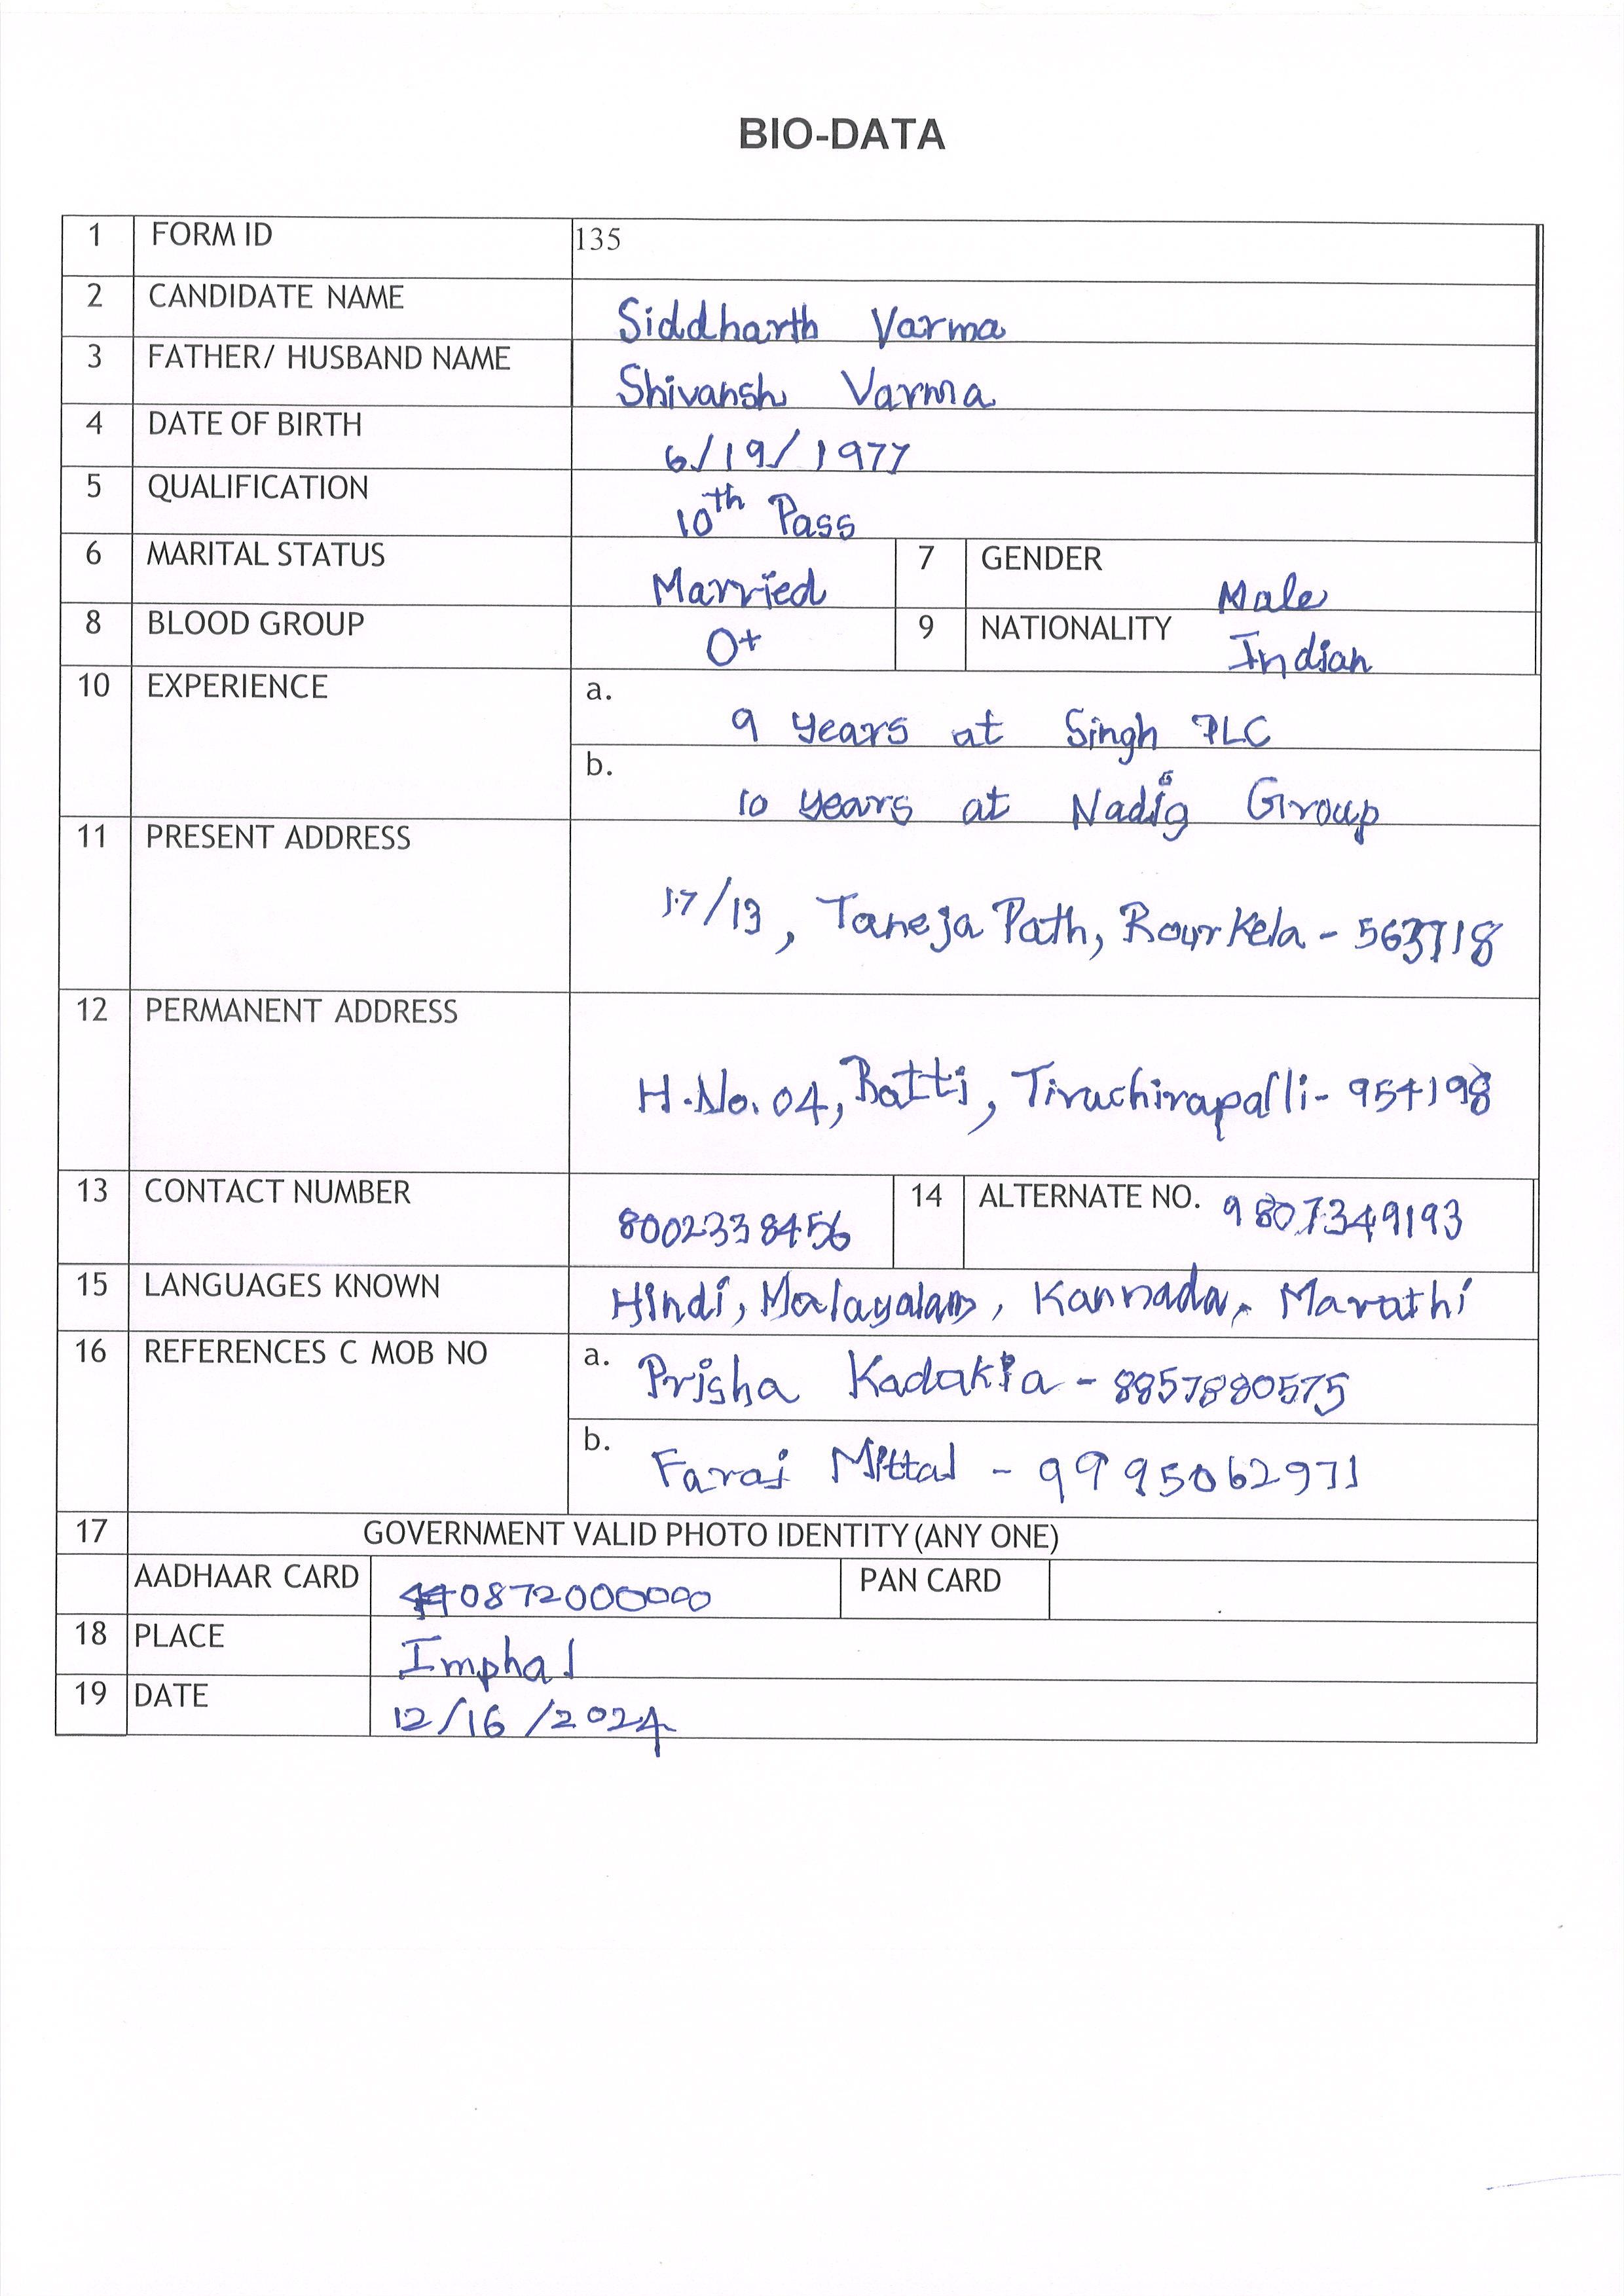 BIO-DATA
1 FORM ID 135
2 CANDIDATE NAME Siddharth Varma
3 FATHER/ HUSBAND NAME Shivansh Varma
4 DATE OF BIRTH 6/19/1977
5 QUALIFICATION 10th Pass
6 MARITAL STATUS Married 7 GENDER Male
8 BLOOD GROUP O+ 9 NATIONALITY Indian
10 EXPERIENCE a. 9 years at Singh PLC
b. 10 years at Nadig Group
11 PRESENT ADDRESS
17/13, Taneja Path, Rourkela - 563718
12 PERMANENT ADDRESS
H.No. 04, Batti, Tiruchirapalli- 954198
13 CONTACT NUMBER 8002338456 14 ALTERNATE NO. 9807349193
15 LANGUAGES KNOWN Hindi, Malayalam, Kannada, Marathi
16 REFERENCES C MOB NO a. Prisha Kadakia - 8857880575
b. Faraj Mittal - 9995062971
17 GOVERNMENT VALID PHOTO IDENTITY (ANY ONE)
AADHAAR CARD 440872000000 PAN CARD
18 PLACE Imphal
19 DATE 12/16/2024